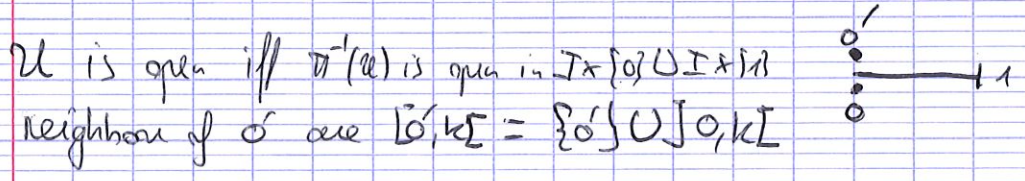 U is open iff π⁻¹(U) is open in I×{0}∪I×{1}
neighbors of 0' are [0',k[ = {0'}∪]0,k[
0'
1
0